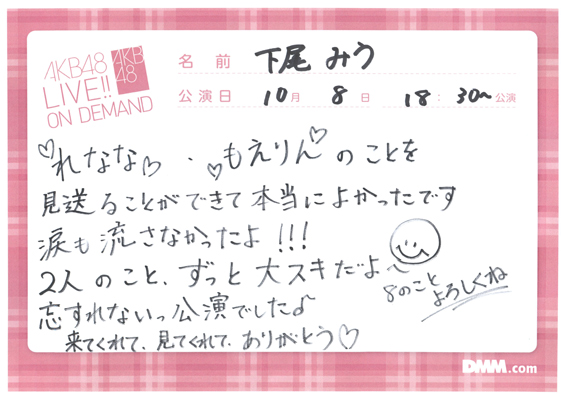 AKB48
LIVE!!
ON DEMAND
AKB
48
名前 下尾 みう
公演日 10月 8日 18:30~公演
♡れなな♡・♡もえりん♡のことを
見送ることができて本当によかったです
涙も流さなかったよ!!!
2人のこと、ずっと大スキだよ
8のこと
よろしくね
忘すれないっ公演でした♪
来てくれて、見てくれて、ありがとう♡
DMM.com